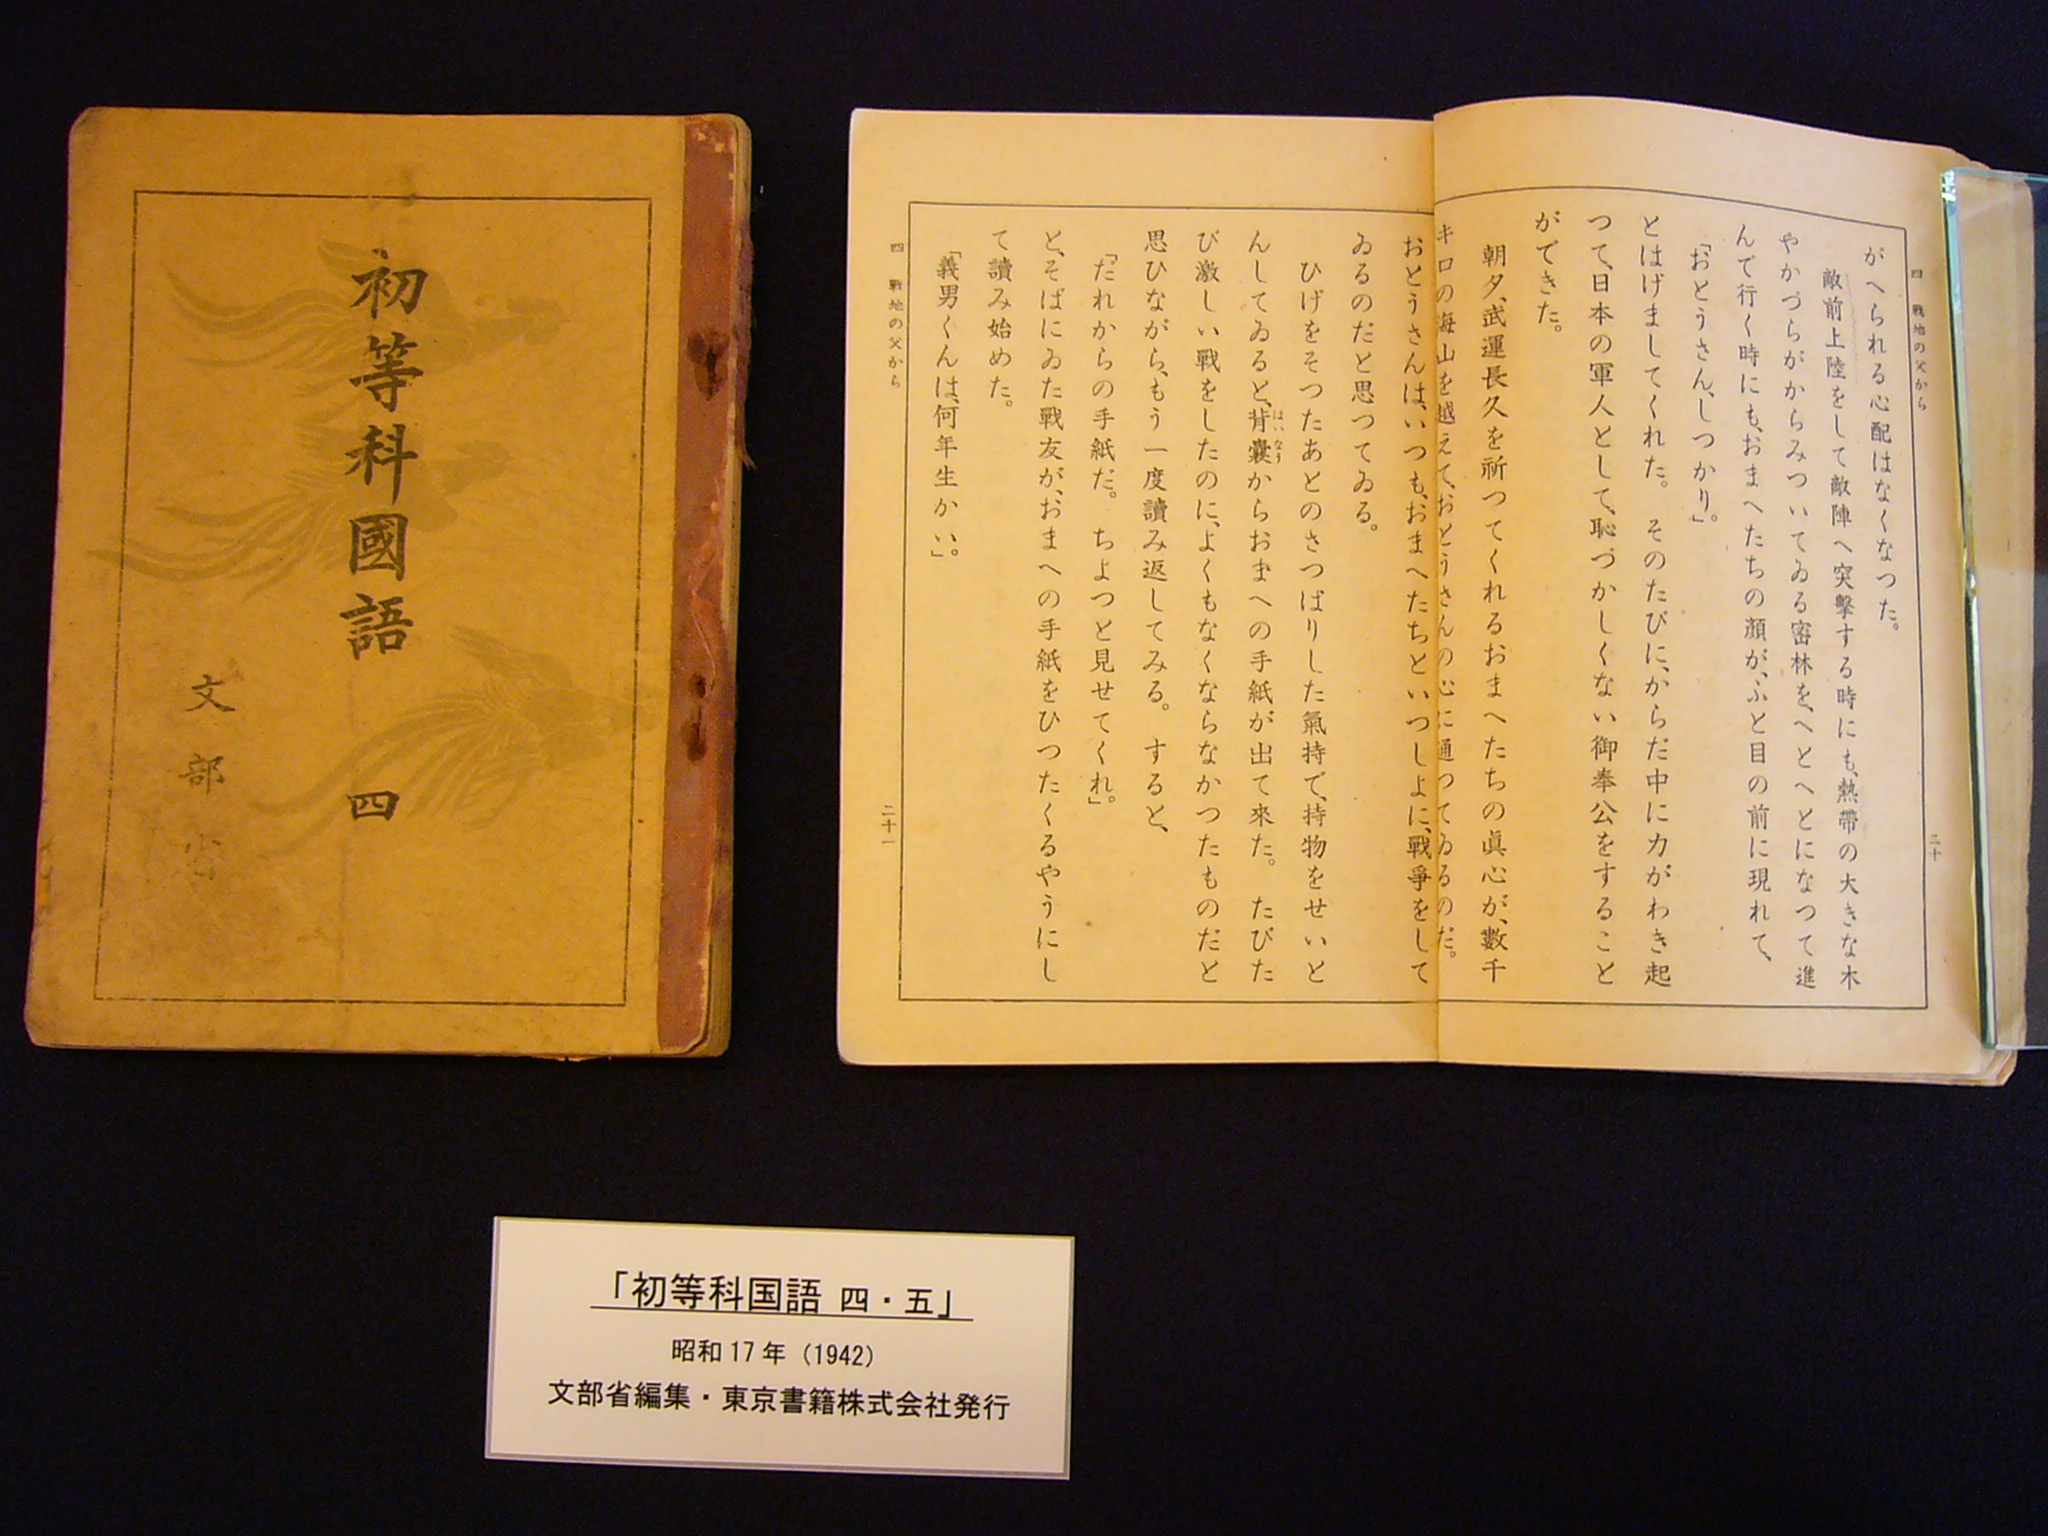 初等科國語 四
文部省
四 戰地の父から
二十
がへられる心配はなくなつた。
敵前上陸をして敵陣へ突撃する時にも、熱帶の大きな木
やかづらがからみついてゐる密林を、へとへとになつて進
んで行く時にも、おまへたちの顔が、ふと目の前に現れて、
「おとうさん、しつかり」。
とはげましてくれた。そのたびに、からだ中に力がわき起
つて、日本の軍人として、恥づかしくない御奉公をすること
ができた。
朝夕、武運長久を祈つてくれるおまへたちの眞心が、數千
キロの海山を越えて、おとうさんの心に通つてゐるのだ。
おとうさんは、いつも、おまへたちといつしよに、戰爭をして
ゐるのだと思つてゐる。
ひげをそつたあとのさつぱりした氣持で、持物をせいと
んしてゐると、背嚢からおまへの手紙が出て來た。たびた
はいなう
び激しい戰をしたのに、よくもなくならなかつたものだと
思ひながら、もう一度讀み返してみる。すると、
「だれからの手紙だ。ちよつと見せてくれ」。
と、そばにゐた戰友が、おまへの手紙をひつたくるやうにし
て讀み始めた。
「義男くんは、何年生かい」。
四 戰地の父から
二十一
「初等科国語 四・五」
昭和17年（1942）
文部省編集・東京書籍株式会社発行